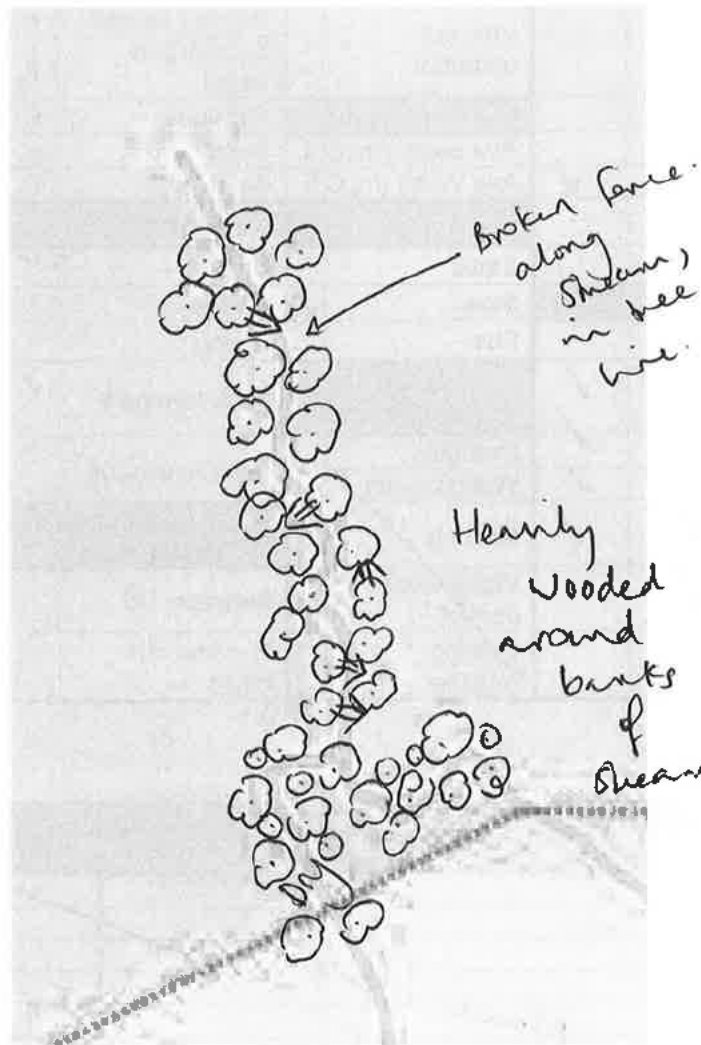 Broken fence.
along
stream,
in tree
line.
Heavily
wooded
around
banks
of
stream